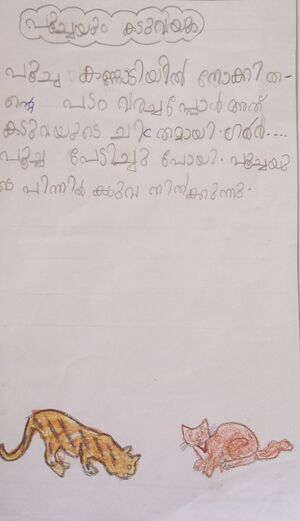 പൂച്ചയും കടുവയും
പൂച്ച കണ്ണാടിയിൽ നോക്കി ത-
ന്റെ പടം വരച്ചപ്പോൾ അത്
കടുവയുടെ ചിത്രമായി. ഗർർ....
പൂച്ച പേടിച്ചു പോയി. പൂച്ചയു
ടെ പിന്നിൽ കടുവ നിൽക്കുന്നു.